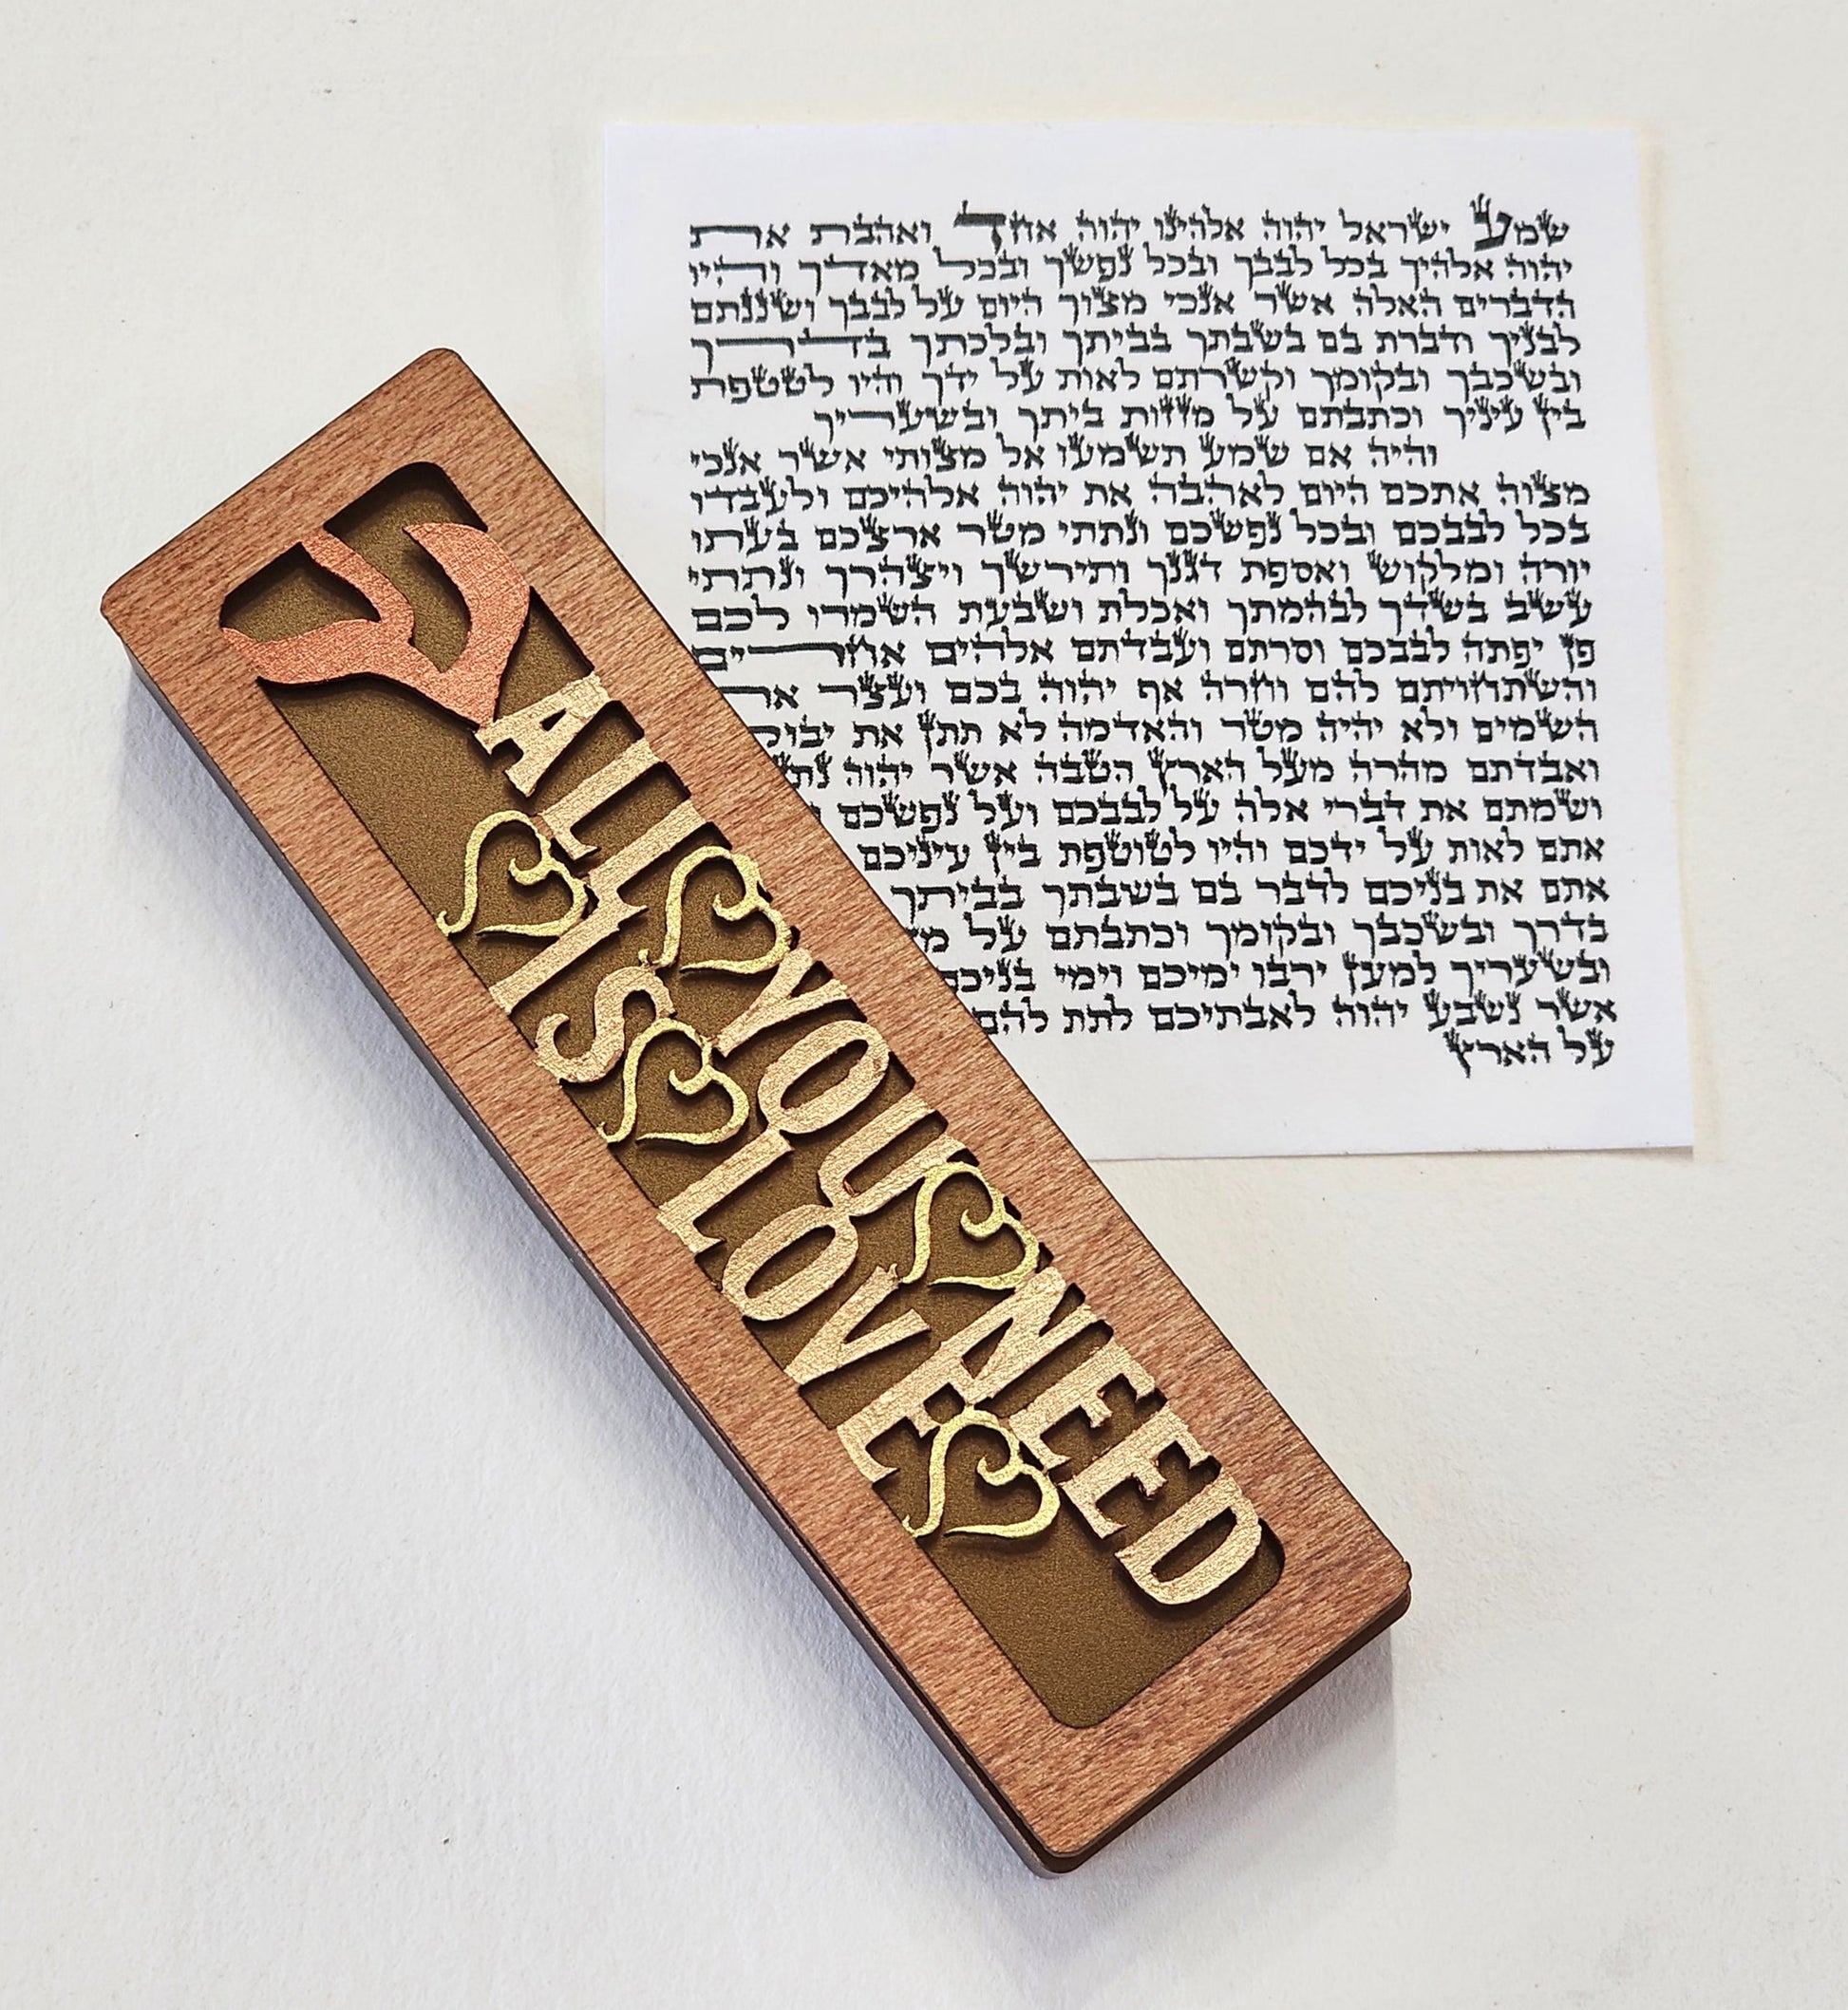 שמע ישראל יהוה אלהינו יהוה אחד ואהבת את
יהוה אלהיך בכל לבבך ובכל נפשך ובכל מאדך והיו
הדברים האלה אשר אנכי מצוך היום על לבבך ושננתם
לבניך ודברת בם בשבתך בביתך ובלכתך בדרך
ובשכבך ובקומך וקשרתם לאות על ידך והיו לטטפת
בין עיניך וכתבתם על מזזות ביתך ובשעריך
והיה אם שמע תשמעו אל מצותי אשר אנכי
מצוה אתכם היום לאהבה את יהוה אלהיכם ולעבדו
בכל לבבכם ובכל נפשכם ונתתי מטר ארצכם בעתו
יורה ומלקוש ואספת דגנך ותירשך ויצהרך ונתתי
עשב בשדך לבהמתך ואכלת ושבעת השמרו לכם
פן יפתה לבבכם וסרתם ועבדתם אלהים אחרים
והשתחויתם להם וחרה אף יהוה בכם ועצר את
השמים ולא יהיה מטר והאדמה לא תתן את
ואבדתם מהרה מעל הארץ הטבה אשר יהוה
ושמתם את דברי אלה על לבבכם ועל נפשכם
אתם לאות על ידכם והיו לטוטפת בין עיניכם
אתם את בניכם לדבר בם בשבתך בביתך
בדרך ובשכבך ובקומך וכתבתם על
ובשעריך למען ירבו ימיכם וימי בניכם
אשר נשבע יהוה לאבתיכם לתת להם
על הארץ
ש
ALL YOU NEED
IS LOVE